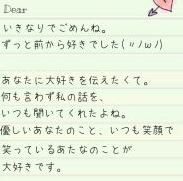 Dear
いきなりでごめんね。
ずっと前から好きでした(〃ノωノ)
あなたに大好きを伝えたくて。
何も言わず私の話を、
いつも聞いてくれたよね。
優しいあなたのこと、いつも笑顔で
笑っているあたなのことが
大好きです。